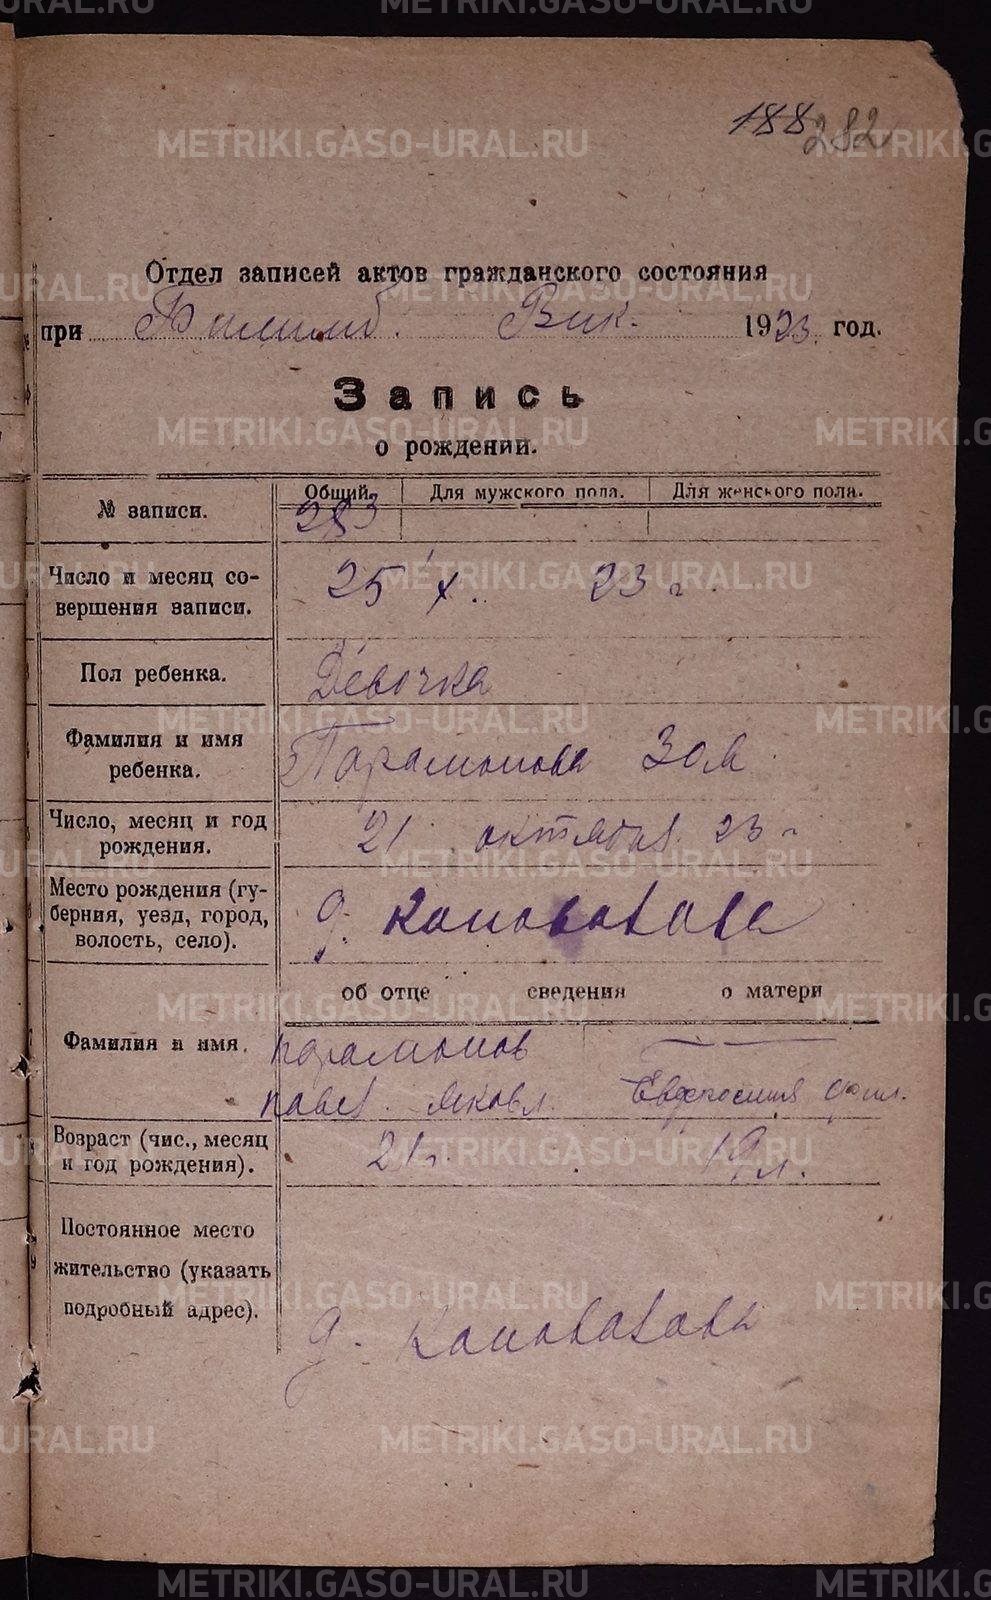 188 282
Отдел записей актов гражданского состояния
при Билимб. Вик. 1923 год.
Запись
о рождении.
№ записи. Общий. Для мужского пола. Для женского пола.
283
Число и месяц со-
вершения записи. 25 X. 23 г.
Пол ребенка. Девочка
Фамилия и имя
ребенка. Парамонова Зоя
Число, месяц и год
рождения. 21 октября 23 г
Место рождения (гу-
берния, уезд, город,
волость, село). д. Коновалова
об отце сведения о матери
Фамилия и имя. Парамонов
Павел. Яковл. Евдросиния Фил.
Возраст (чис., месяц
и год рождения). 21 г. 19 л.
Постоянное место
жительство (указать
подробный адрес).
д. Коновалова
METRIKI.GASO-URAL.RU